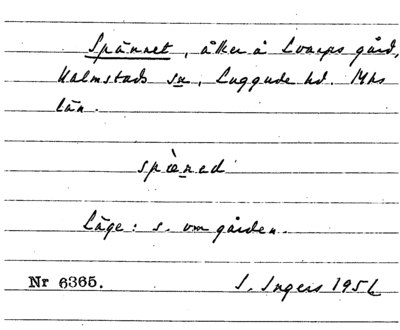 Spännet, åker å Svarps gård,
Halmstads sn, Luggude hd. Mhs
län.
spænəd
Läge: s. om gården.
Nr 6365. I. Ingers 1956